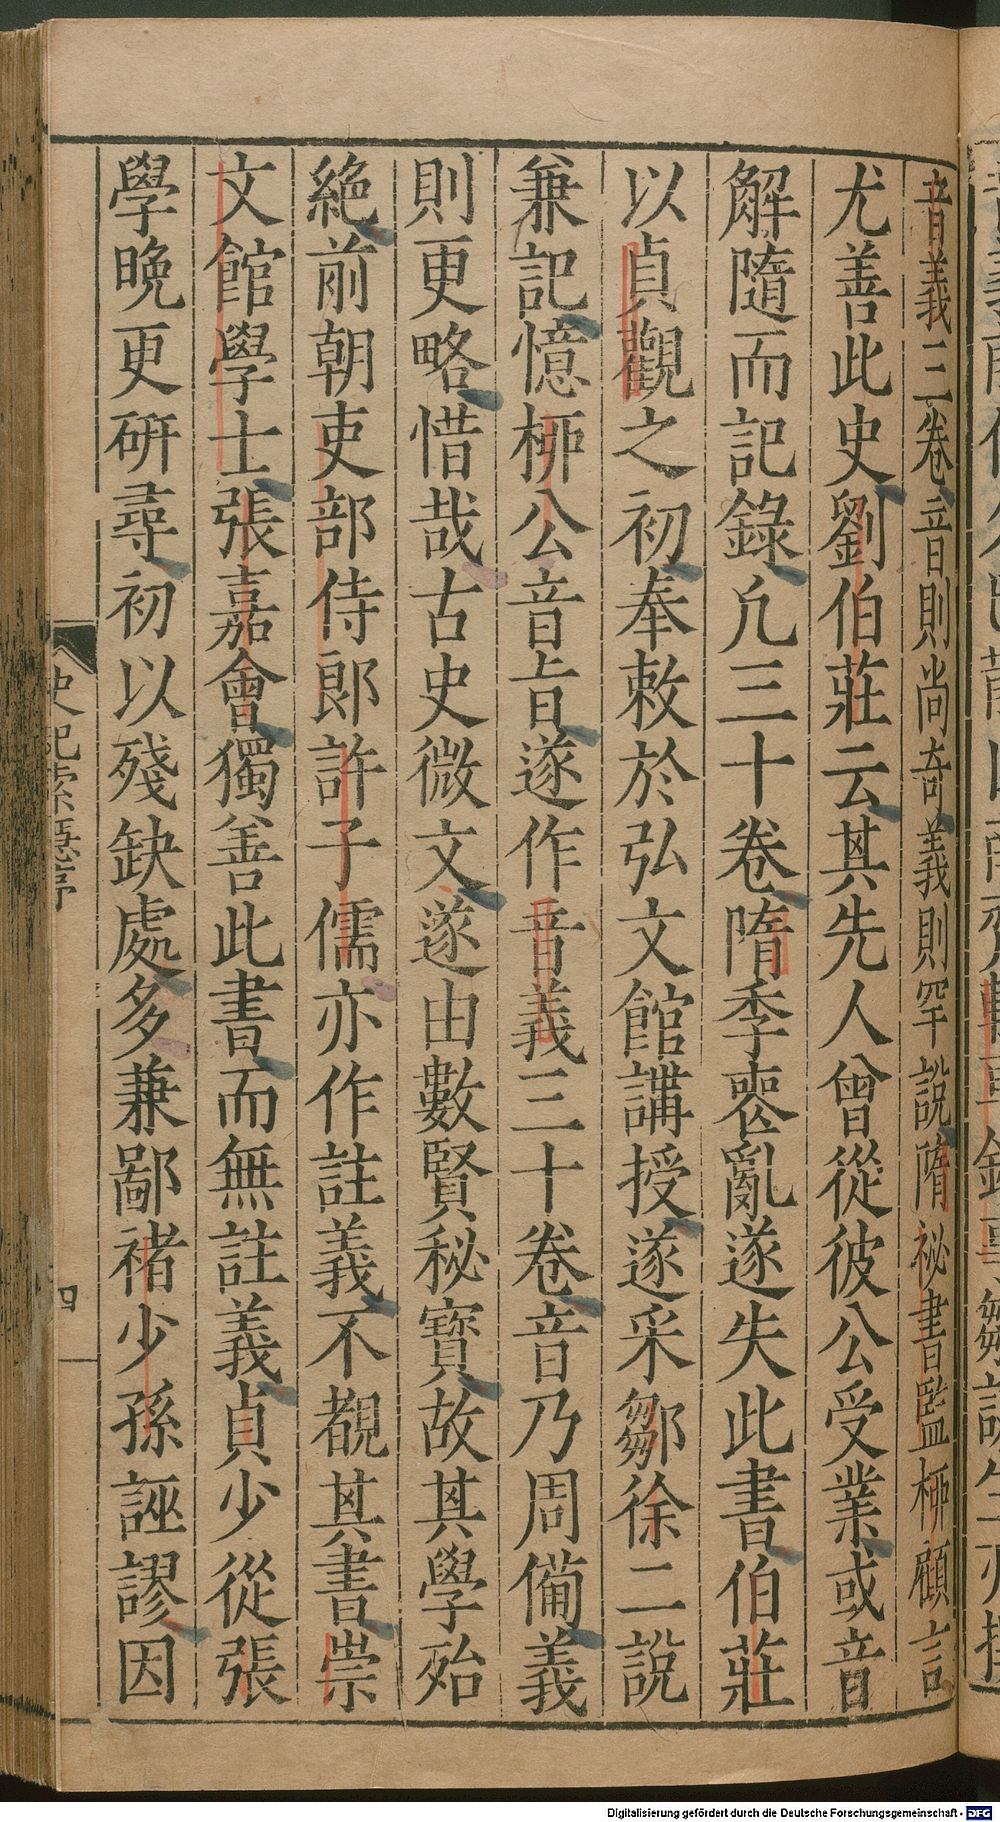 音義三卷音則尚奇義則罕說隋祕書監栁顧言
尤善此史劉伯莊云其先人曾從彼公受業或音
解隨而記錄凢三十卷隋季喪亂遂失此書伯莊
以貞觀之初奉敕於弘文館講授遂采鄒徐二說
兼記憶栁公音旨遂作音義三十卷音乃周備義
則更略惜哉古史微文遂由數賢秘寶故其學殆
絶前朝吏部侍郎許子儒亦作註義不覩其書崇
文館學士張嘉會獨善此書而無註義貞少從張
學晚更研尋初以殘缺處多兼鄙褚少孫誣謬因
史記索隱序
四
Digitalisierung gefördert durch die Deutsche Forschungsgemeinschaft - DFG